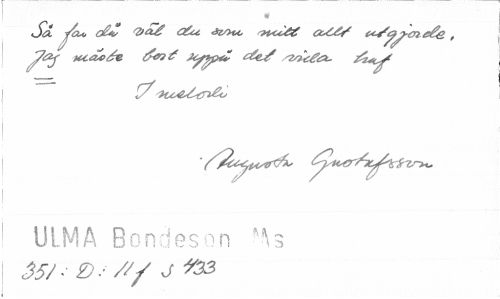 Så far då väl du som mitt allt utgjorde.
Jag måste bort uppå det vilda haf
I melodi
Augusta Gustafsson
ULMA Bondeson Ms
351: D: 11 f s 433